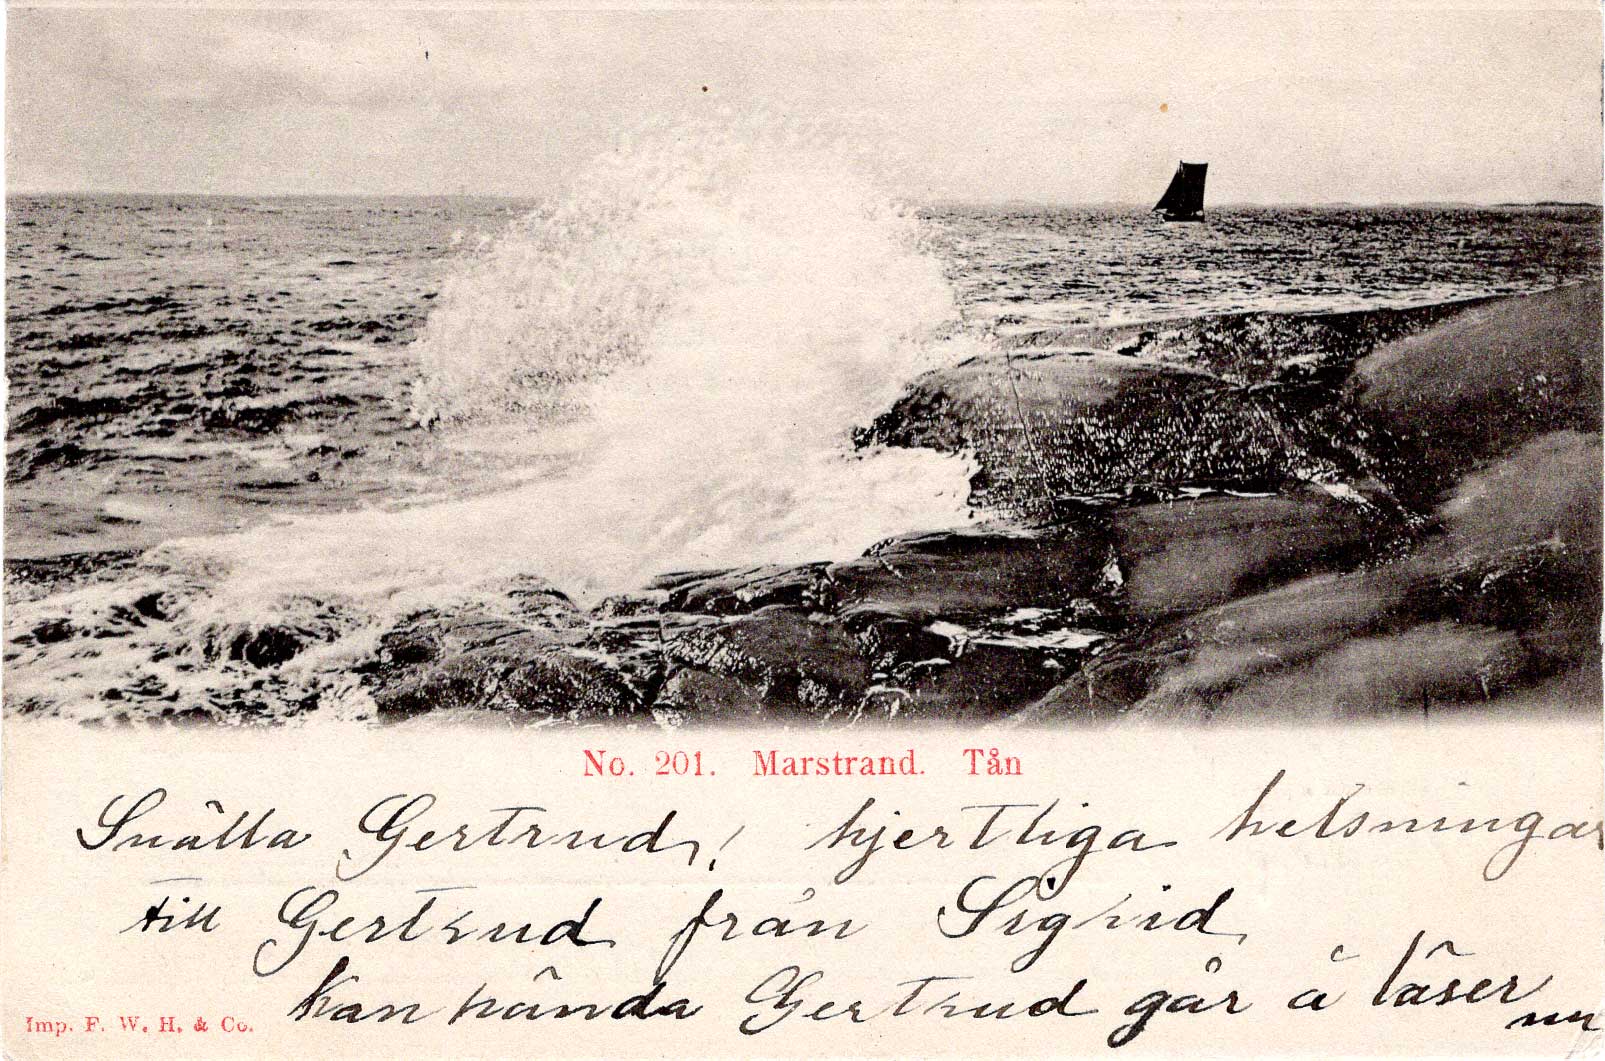 No. 201. Marstrand. Tån
Snälla Gertrud! hjertliga helsningar
till Gertrud från Sigrid
Kan hända Gertrud går å läser
nu
Imp. F. W. H. & Co.